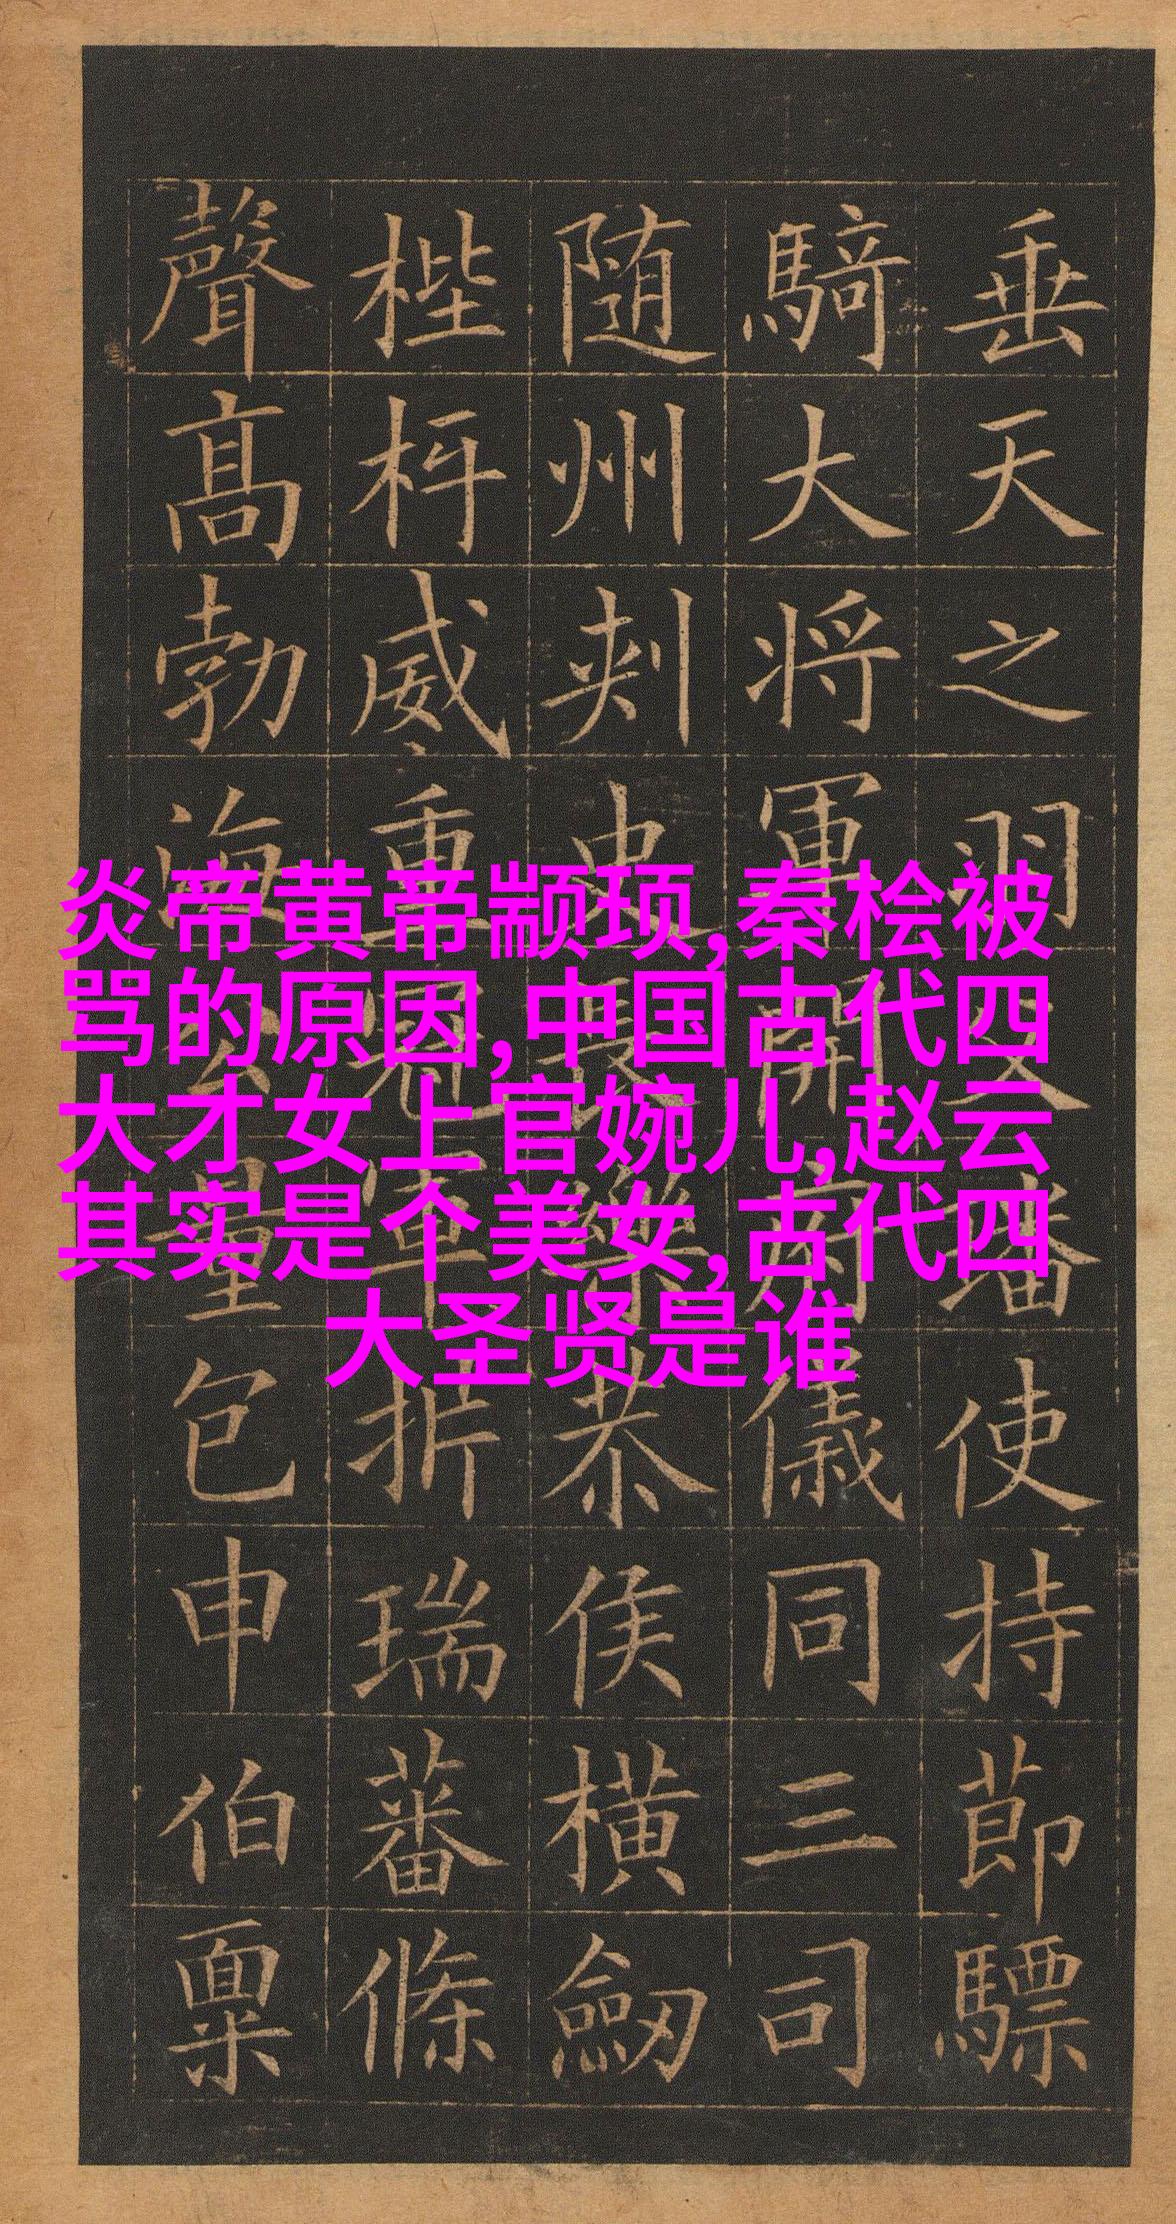 炎帝黄帝颛顼,秦桧被
骂的原因,中国古代四
大才女上官婉儿,赵云
其实是个美女,古代四
大圣贤是谁
垂天之羽父璠使持節驃
騎大将軍開府儀同三司
随州刾史長樂恭侯橫劒
梐枑威重軍折瑞蕃條
聲高勃海公量包申伯稟